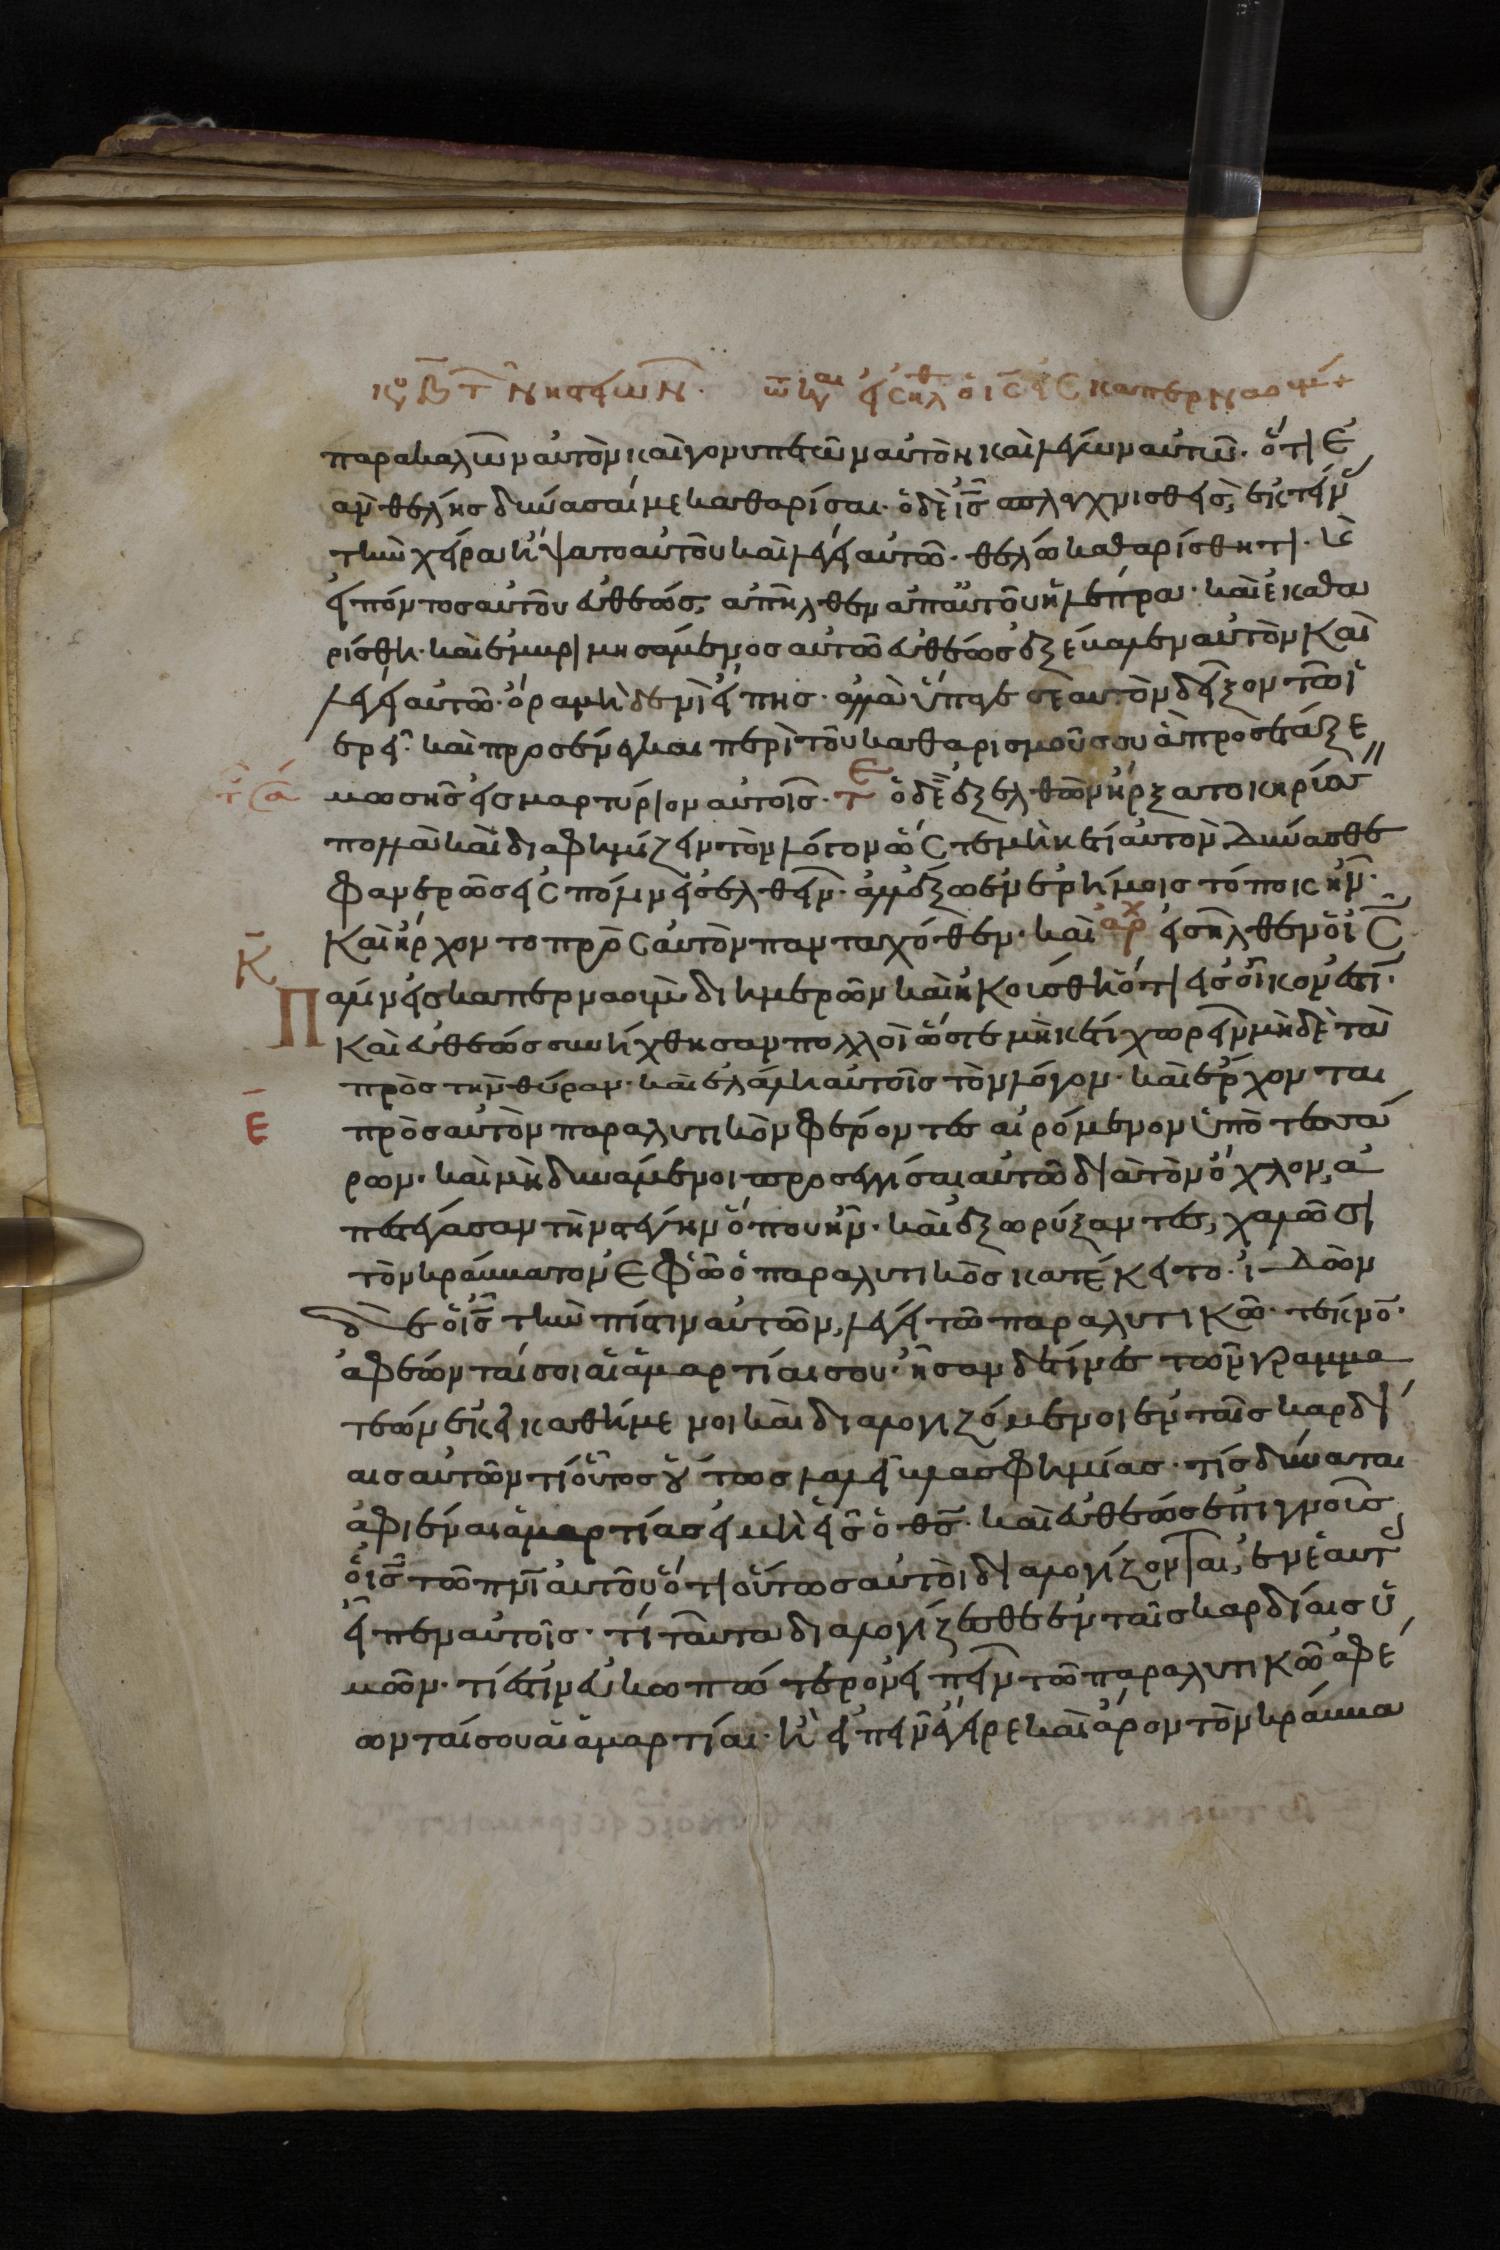 κυ β τ νηστειων. τω και εισηλθ ο ις εις καπερναουμ +
παρακαλῶν αὐτὸν καὶ γονυπετῶν αὐτὸν καὶ λέγων αὐτῶ. ὅτι ἐ
ὰν θέλης δύνασαί με καθαρίσαι. ὁ δὲ ις σπλαγχνισθεὶς, ἐκτείν
τὴν χεῖρα ἥψατο αὐτοῦ καὶ λέγει αὐτῶ. θέλω καθαρίσθητι. κ
εἰπόντος αὐτοῦ εὐθέως, ἀπῆλθεν ἀπ αὐτοῦ ἡ λέπρα. καὶ ἐκαθα
ρίσθη. καὶ ἐμβριμησάμενος αὐτῶ εὐθέως ἐξέβαλεν αὐτὸν καὶ
λέγει αὐτῶ. ὅρα μηδενὶ εἴπης. ἀλλὰ ὕπαγε σεαυτὸν δεῖξον τῶ ἱ
ερεῖ. καὶ προσένεγκαι περὶ τοῦ καθαρισμοῦ σου ἃ προσέταξε
μωσῆς εἰς μαρτύριον αὐτοῖς. τε ὁ δὲ ἐξελθὼν ἤρξατο κηρύσ
πολλὰ καὶ διαφημίζειν τὸν λόγον ὥστε μηκέτι αὐτὸν δύνασθε
φανερῶς εἰς πόλιν εἰσελθεῖν. ἀλλ ἔξω ἐν ἐρήμοις τόποις ἦν.
καὶ ἤρχοντο πρὸς αὐτὸν πανταχόθεν. καὶ αρχ εἰσῆλθεν ὁ ις
κ
Πάλιν εἰς καπερναοὺμ δι ἡμερῶν καὶ ἠκούσθη ὅτι εἰς οἶκον ἐστί.
καὶ εὐθέως συνήχθησαν πολλοὶ ὥστε μηκέτι χωρεῖν μηδὲ τὰ
πρὸς τὴν θύραν. καὶ ἐλάλει αὐτοῖς τὸν λόγον. καὶ ἔρχονται
ε πρὸς αὐτὸν παραλυτικὸν φέροντες αἰρόμενον ὑπὸ τεσσά
ρων. καὶ μὴ δυνάμενοι προσεγγίσαι αὐτῶ διὰ τὸν ὄχλον, ἀ
πεστέγασαν τὴν στέγην ὅπου ἦν. καὶ ἐξωρύξαντες, χαλῶσι
τὸν κράββατον ἐφ ῶ ὁ παραλυτικὸς κατέκειτο. ἰδὼν
δὲ ὁ ις τὴν πίστιν αὐτῶν, λέγει τῶ παραλυτικῶ. τέκνο.
ἀφέωνταί σοι αἱ ἁμαρτίαι σου. ἦσαν δέ τινες τῶν γραμμα
τέων ἐκεῖ καθήμενοι καὶ διαλογιζόμενοι ἐν ταῖς καρδί
αις αὐτῶν τί οὗτος οὕτως λαλεῖ βλασφημίας. τίς δύναται
ἀφιέναι ἁμαρτίας εἰ μὴ εἷς ὁ θς. καὶ εὐθέως ἐπιγνοὺς
ὁ ις τῶ πνι αὐτοῦ ὅτι οὕτως αὐτοὶ διαλογίζονται, ἐν ἑαυτ
εἶπεν αὐτοῖς. τί ταῦτα διαλογίζεσθε ἐν ταῖς καρδίαις ὑ
μῶν. τί ἐστὶν εὐκοπώτερον εἰπεῖν τῶ παραλυτικῶ ἀφέ
ωνταί σου αἱ ἁμαρτίαι. ἢ εἰπεῖν ἔγειρε καὶ ἆρον τὸν κράββα